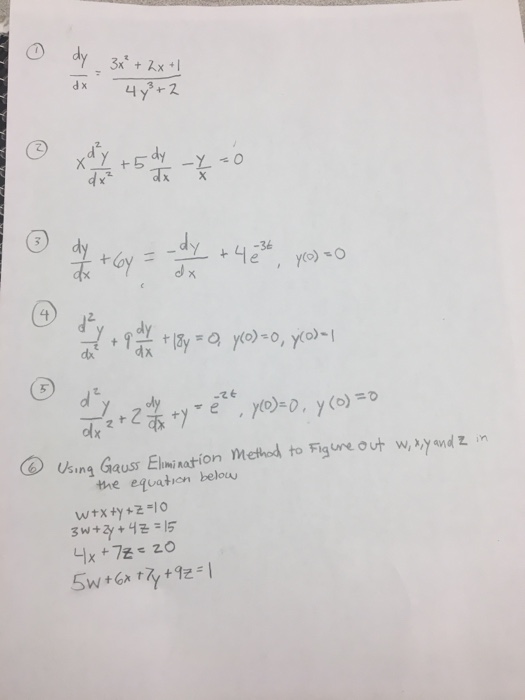 ① dy/dx = (3x² + 2x + 1)/(4y³ + 2)
② x d²y/dx² + 5 dy/dx - y/x = 0
③ dy/dx + 6y = -dy/dx + 4e^(-3t), y(0) = 0
④ d²y/dx² + 9 dy/dx + 18y = 0, y(0) = 0, y(0) = 1
⑤ d²y/dx² + 2 dy/dx + y = e^(-2t), y(0) = 0, y(0) = 0
⑥ Using Gauss Elimination Method to Figure out w, x, y and z in
the equation below
w+x+y+z = 10
3w+2y+4z = 15
4x+7z = 20
5w+6x+7y+9z = 1